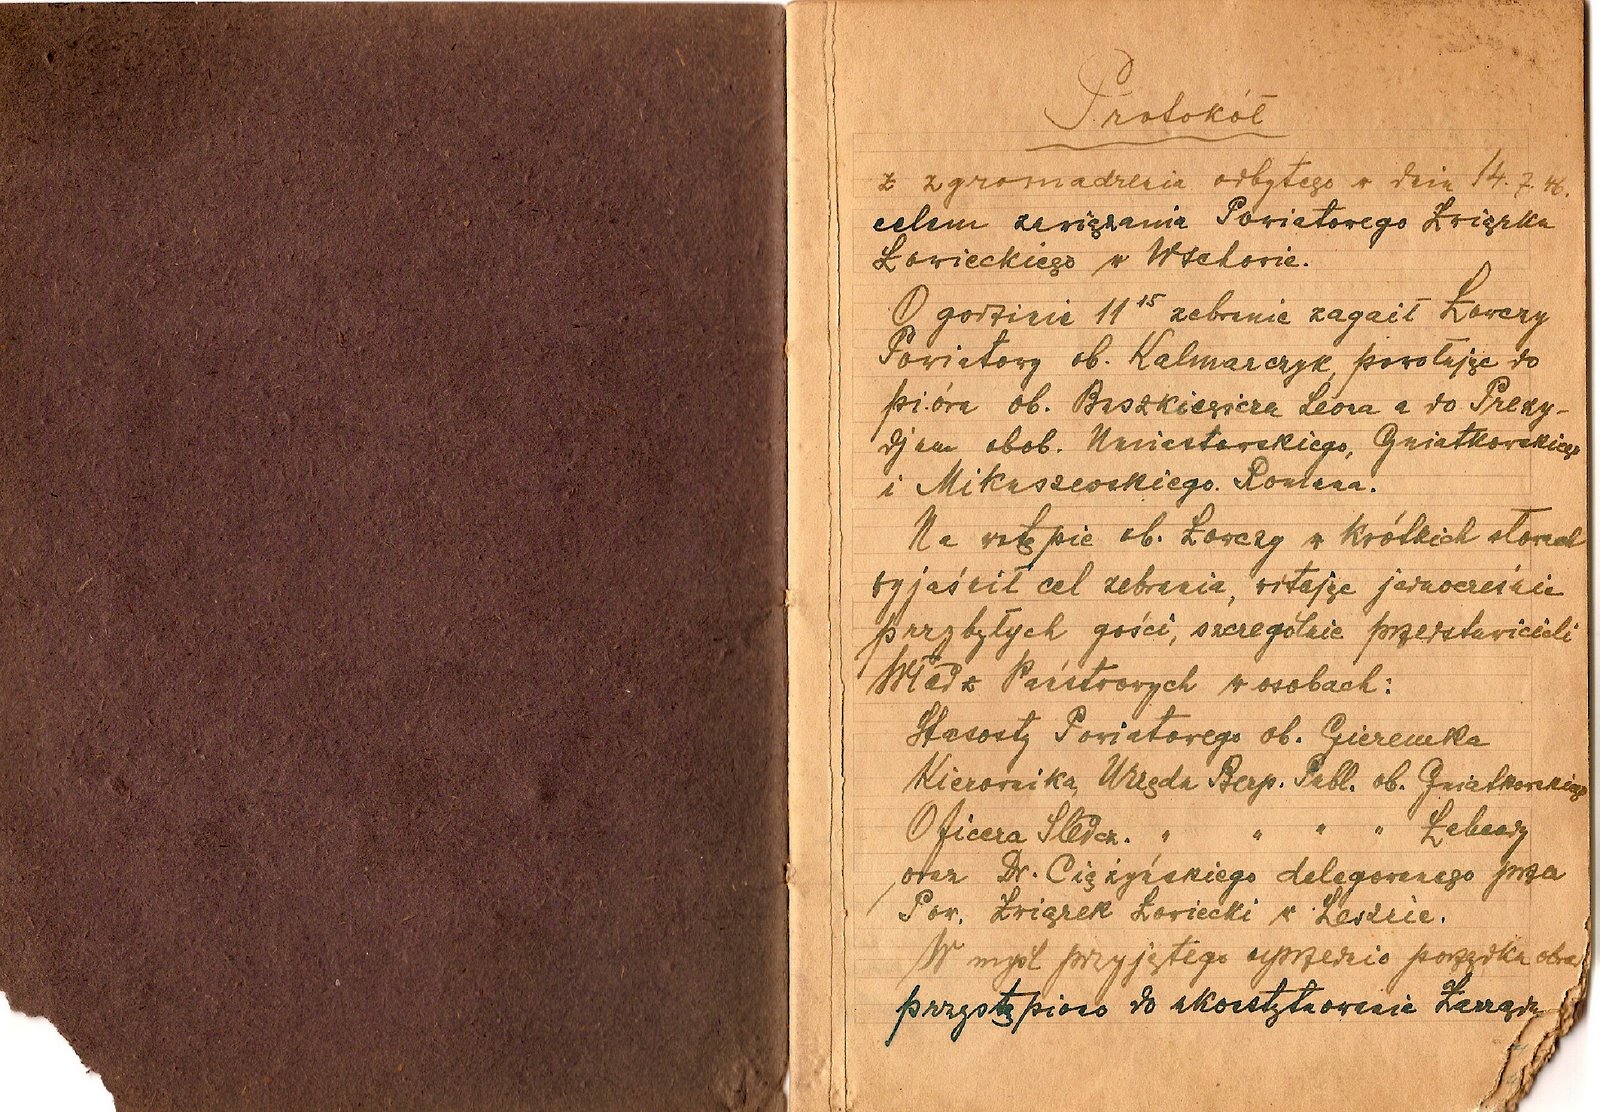 Protokół
z zgromadzenia odbytego w dniu 14.7.46.
celem zawiązania Powiatowego Związku
Łowieckiego w Wschowie.
O godzinie 11 15 zebranie zagaił Łowczy
Powiatowy ob. Kalmarczyk, powołując do
pióra ob. Baszkiewicza Leona a do Prezy-
djum obob. Uniastowskiego, Gniatkowskiego
i Mikuszewskiego Romana.
Na wstępie ob. Łowczy w krótkich słowach
wyjaśnił cel zebrania, witając jednocześnie
przybyłych gości, szczególnie przedstawicieli
Władz Państwowych w osobach:
Starosty Powiatowego ob. Gieremka
Kierownika Urzędu Bezp. Publ. ob. Gniatkowskiego
Oficera Śledcz. " " " " Łabendy
oraz Dr. Ciążyńskiego delegowanego przez
Pow. Związek Łowiecki w Lesznie.
W myśl przyjętego uprzednio porządku obrad
przystąpiono do ukonstytuowania Zarządu